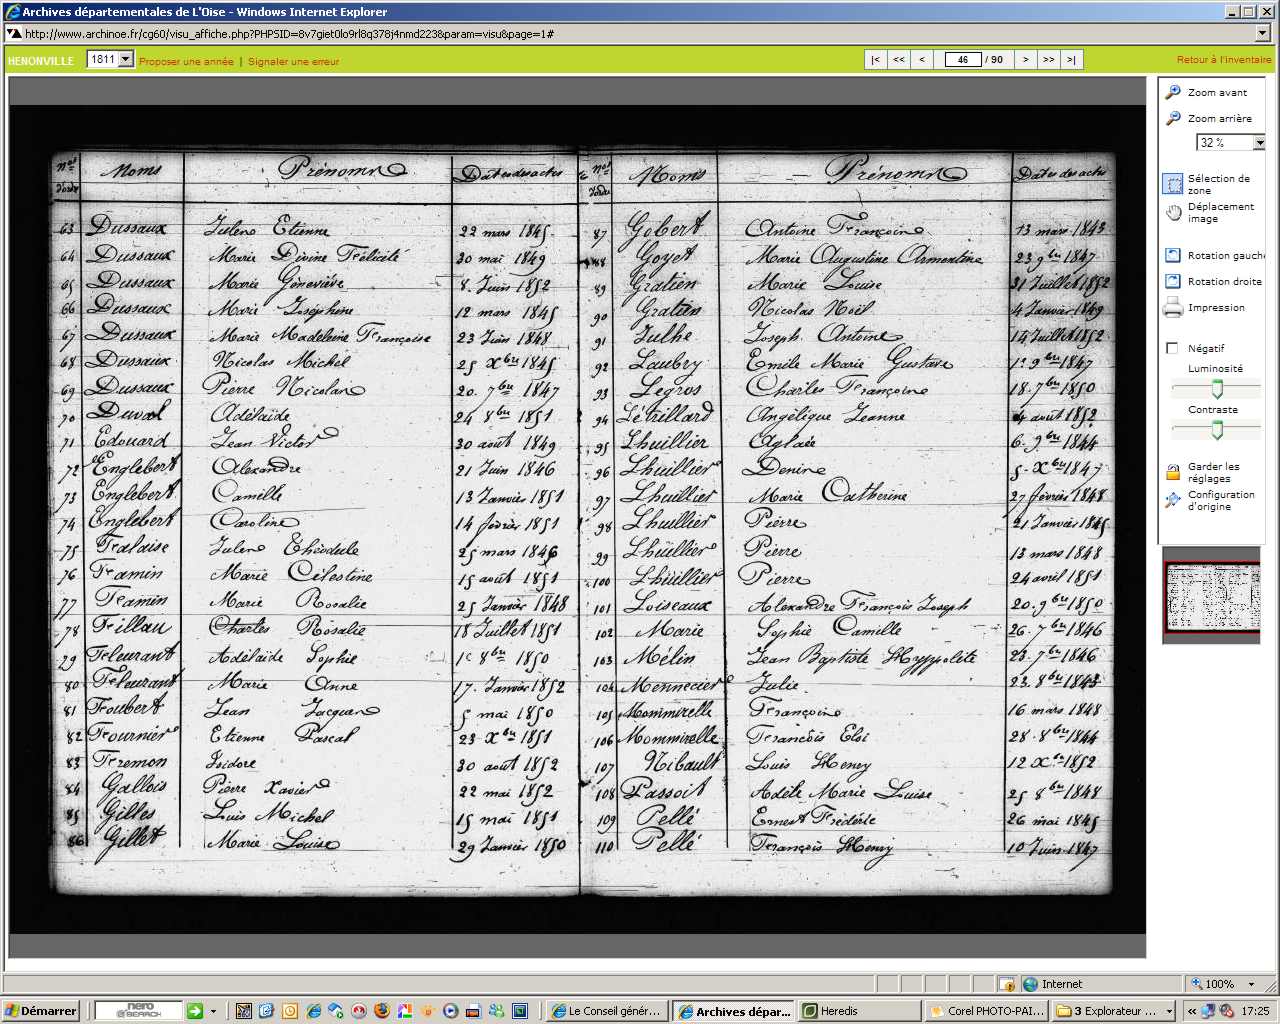 Archives départementales de L'Oise - Windows Internet Explorer
http://www.archinoe.fr/cg60/visu_affiche.php?PHPSID=8v7giet0lo9rl8q378j4nmd223&param=visu&page=1#
HENONVILLE 1811 Proposer une année | Signaler une erreur |< << < 46 / 90 > >> >| Retour à l'inventaire
Nos d'ordre Noms Prénoms Dates des actes
63 Dussaux Jules Etienne 22 mars 1845
64 Dussaux Marie Divine Félicité 30 mai 1849
65 Dussaux Marie Géneviève 8. Juin 1852
66 Dussaux Marie Joséphine 12 mars 1845
67 Dussaux Marie Madeleine Françoise 23 Juin 1848
68 Dussaux Nicolas Michel 25 Xbre 1845
69 Dussaux Pierre Nicolas 20. 7bre 1847
70 Duval Adélaïde 24 8bre 1851
71 Edouard Jean Victor 30 août 1849
72 Englebert Alexandre 21 Juin 1846
73 Englebert Camille 13 Janvier 1851
74 Englebert Caroline 14 février 1851
75 Falaise Jules Théodule 25 mars 1846
76 Famin Marie Célestine 15 août 1851
77 Famin Marie Rosalie 25 Janvier 1848
78 Fillau Charles Rosalie 18 Juillet 1851
79 Fleurant Adélaïde Sophie 1er 8bre 1850
80 Fleurant Marie Anne 17. Janvier 1852
81 Foubert Jean Jacques 5 mai 1850
82 Fournier Etienne Pascal 23 Xbre 1851
83 Fremon Isidore 30 août 1852
84 Gallois Pierre Xavier 22 mai 1852
85 Gilles Louis Michel 15 mai 1851
86 Gillet Marie Louise 29 Janvier 1850
Nos d'ordre Noms Prénoms Dates des actes
87 Gobert Antoine François 13 mars 1843
88 Goyet Marie Augustine Armentine 23 9bre 1847
89 Gratien Marie Louise 31 Juillet 1852
90 Gratien Nicolas Noël 4 Janvier 1849
91 Julhe Joseph Antoine 14 Juillet 1852
92 Laubry Emile Marie Gustave 1er 9bre 1847
93 Legros Charles François 18. 7bre 1850
94 Létrillard Angélique Jeanne 4 août 1852
95 Lhuillier Aglaée 6. 9bre 1844
96 Lhuillier Denis 5. Xbre 1847
97 Lhuillier Marie Catherine 27 février 1848
98 Lhuillier Pierre 21 Janvier 1845
99 Lhuillier Pierre 13 mars 1848
100 Lhuillier Pierre 24 avril 1851
101 Loiseaux Alexandre François Joseph 20. 9bre 1850
102 Marie Sophie Camille 26. 7bre 1846
103 Mélin Jean Baptiste Hyppolite 23. 7bre 1846
104 Mennecier Julie 23. 8bre 1843
105 Mommirelle François 16 mars 1848
106 Mommirelle François Eloi 28. 8bre 1844
107 Nibault Louis Henry 12 Xbre 1852
108 Passoit Adèle Marie Louise 25 8bre 1848
109 Pellé Ernest Frédéric 26 mai 1845
110 Pellé François Henry 10 Juin 1847
Zoom avant
Zoom arrière
32 %
Sélection de
zone
Déplacement
image
Rotation gauche
Rotation droite
Impression
Négatif
Luminosité
Contraste
Garder les
réglages
Configuration
d'origine
Internet 100%
Démarrer nero SEARCH Le Conseil génér... Archives dépar... Heredis Corel PHOTO-PAI... 3 Explorateur ... 17:25